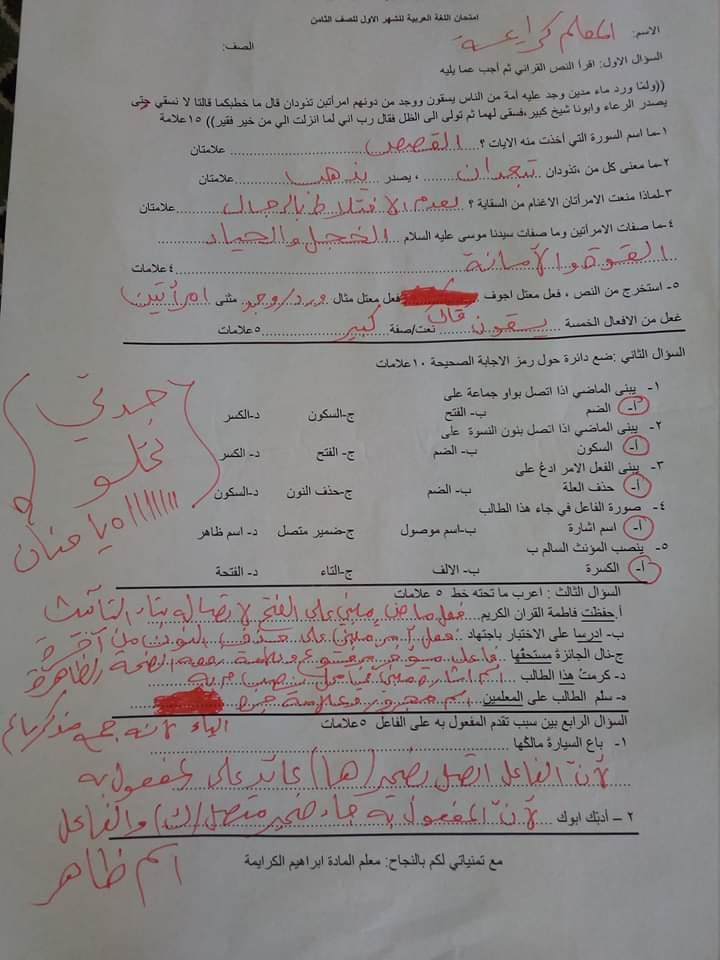 امتحان اللغة العربية للشهر الاول للصف الثامن
الاسم: المعلم كرايمة الصف:
السؤال الاول: اقرأ النص القراني ثم أجب عما يليه
((ولمّا ورد ماء مدين وجد عليه أمة من الناس يسقون ووجد من دونهم امرأتين تذودان قال ما خطبكما قالتا لا نسقي حتى
يصدر الرعاء وابونا شيخ كبير،فسقى لهما ثم تولى الى الظل فقال رب اني لما انزلت الي من خير فقير)) ١٥علامة
١-ما اسم السورة التي أخذت منه الايات ؟ القصص علامتان
٢-ما معنى كل من ،تذودان تبعدان ، يصدر يذهب علامتان
٣-لماذا منعت الامرأتان الاغنام من السقاية ؟ لعدم الاختلاط بالرجال علامتان
٤-ما صفات الامرأتين وما صفات سيدنا موسى عليه السلام الخجل والحياء
القوة والأمانة ٤علامات
٥- استخرج من النص ، فعل معتل اجوف قال فعل معتل مثال ورد/وجد مثنى امرأتين
غعل من الافعال الخمسة يسقون نعت/صفة كبير ٥علامات
السؤال الثاني :ضع دائرة حول رمز الاجابة الصحيحة ١٠علامات
١- يبنى الماضي اذا اتصل بواو جماعة على
أ- الضم ب- الفتح ج-السكون د-الكسر
٢- يبنى الماضي اذا اتصل بنون النسوة على
أ- السكون ب- الضم ج- الفتح د- الكسر
٣- يبنى الفعل الامر ادعُ على
أ- حذف العلة ب- الضم ج-حذف النون د-السكون
٤- صورة الفاعل في جاء هذا الطالب
أ- اسم اشارة ب-اسم موصول ج-ضمير متصل د- اسم ظاهر
٥- ينصب المؤنث السالم ب
أ- الكسرة ب- الالف ج-التاء د- الفتحة
جدتي
يا حنان
السؤال الثالث : اعرب ما تحته خط ٥ علامات
أ.حفظت فاطمة القران الكريم. فعل ماض مبني على الفتح لاتصاله بتاء التأنيث
ب- ادرسا على الاختبار باجتهاد فعل أمر مبني على حذف النون من آخره
ج-نال الجائزة مستحقُها فاعل مؤخر مرفوع وعلامة رفعه الضمة الظاهرة
د- كرمتُ هذا الطالب اسم اشارة مبني في محل نصب م به
ه- سلم الطالب على المعلمين اسم مجرور وعلامة جره
الياء لأنه جمع مذكر سالم
السؤال الرابع بين سبب تقدم المفعول به على الفاعل ٥علامات
١- باع السيارة مالكُها
لأنّ الفاعل اتصل بضمير (ها) عائد على المفعول به
٢ – أدبَك ابوك لأنّ المفعول به جاء ضمير متصل (ك) والفاعل
اسم ظاهر
مع تمنياتي لكم بالنجاح: معلم المادة ابراهيم الكرايمة